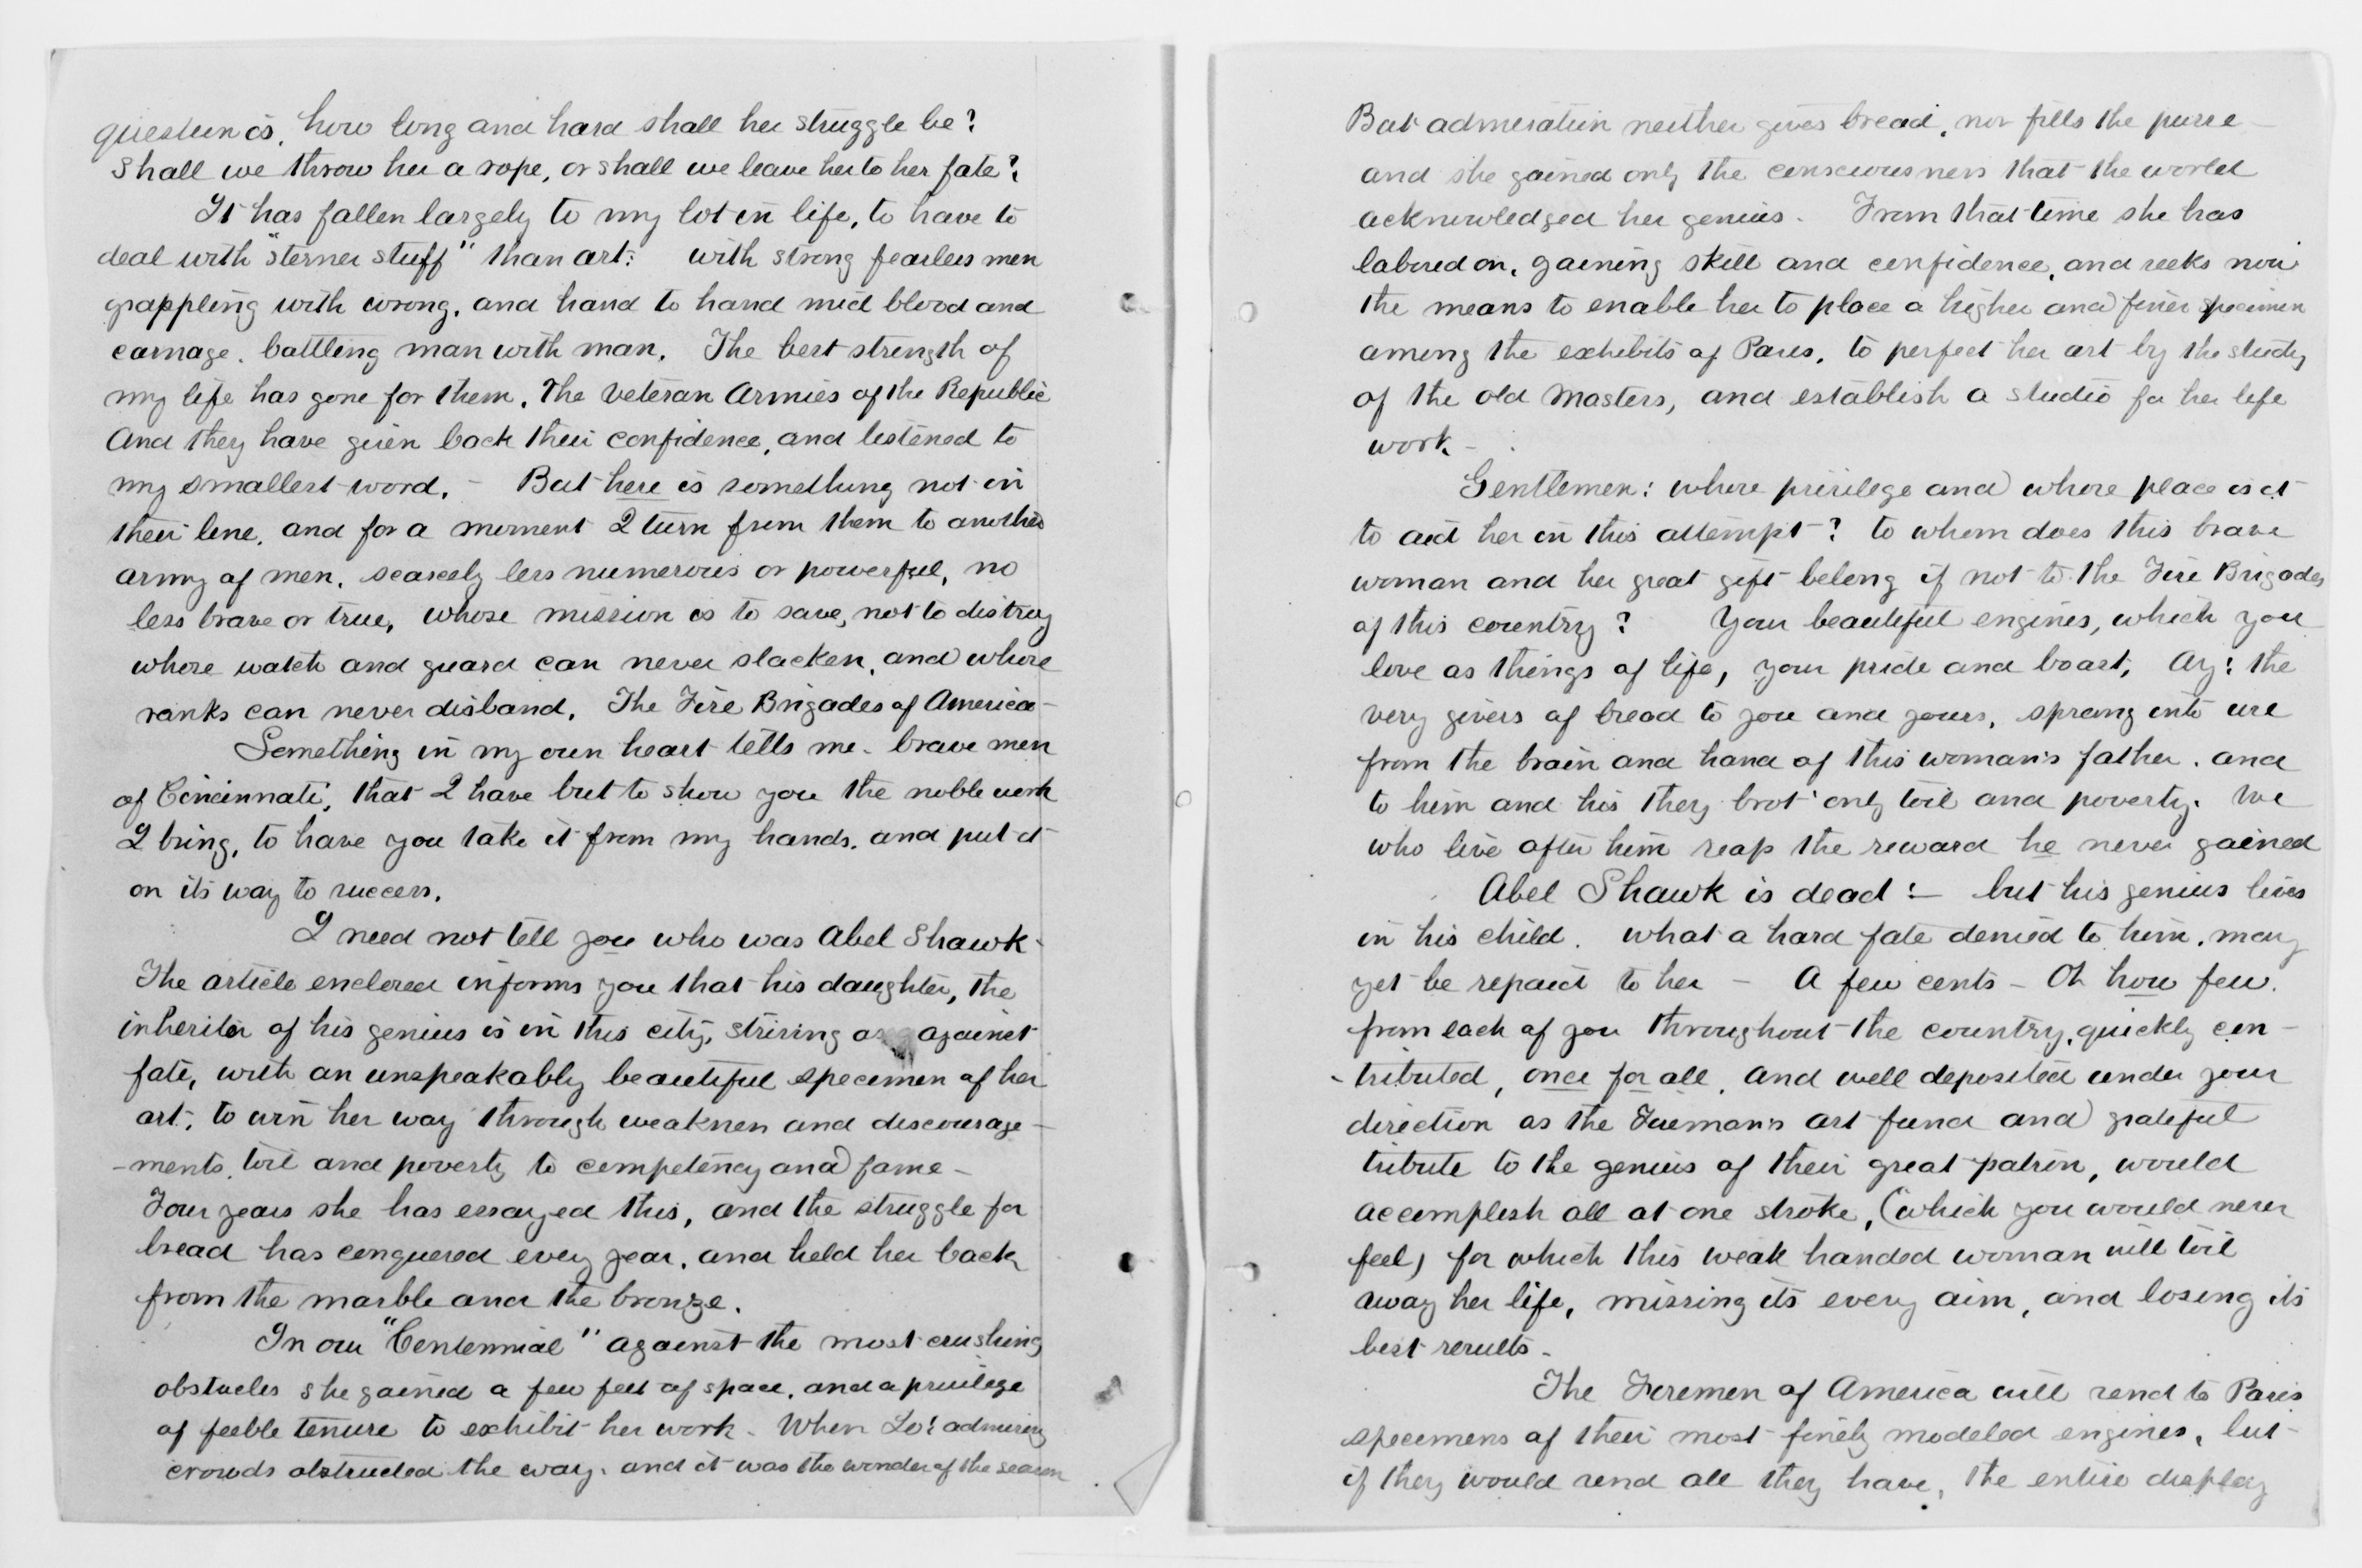 question is, how long and hard shall her struggle be?
Shall we throw her a rope, or shall we leave her to her fate?
It has fallen largely to my lot in life, to have to
deal with "sterner stuff" than art: with strong fearless men
grappling with wrong, and hand to hand mid blood and
carnage, battling man with man. The best strength of
my life has gone for them, The Veteran Armies of the Republic
And they have given back their confidence, and listened to
my smallest word. - But here is something not in
their line, and for a moment I turn from them to another
army of men, scarcely less numerous or powerful, no
less brave or true, whose mission is to save, not to distroy
where watch and guard can never slacken, and where
ranks can never disband. The Fire Brigades of America -
Something in my own heart tells me - brave men
of Cincinnati, that I have but to show you the noble work
I bring, to have you take it from my hands, and put it
on its way to success.
I need not tell you who was Abel Shawk -
The article enclosed informs you that his daughter, the
inheritor of his genius is in this city, striving as against
fate, with an unspeakably beautiful specimen of her
art, to win her way through weakness and discourage-
-ments, toil and poverty to competency and fame -
Four years she has essayed this, and the struggle for
bread has conquered every year, and held her back
from the marble and the bronze.
In our "Centennial" against the most crushing
obstacles she gained a few feet of space, and a privilege
of feeble tenure to exhibit her work - When Lo! admiring
crowds obstructed the way, and it was the wonder of the season
But admiration neither gives bread, nor fills the purse -
and she gained only the consciousness that the world
acknowledged her genius - From that time she has
labored on, gaining skill and confidence, and seeks now
the means to enable her to place a higher and finer specimen
among the exhibits of Paris, to perfect her art by the study
of the old Masters, and establish a studio for her life
work -
Gentlemen: whose privilege and whose place is it
to aid her in this attempt? to whom does this brave
woman and her great gift belong if not to the Fire Brigades
of this country? Your beautiful engines, which you
love as things of life, your pride and boast, Ay! the
very givers of bread to you and yours, sprang into use
from the brain and hand of this woman's father, and
to him and his they brot' only toil and poverty. We
who live after him reap the reward he never gained
Abel Shawk is dead! - but his genius lives
in his child. What a hard fate denied to him, may
yet be repaid to her - A few cents - Oh how few,
from each of you throughout the country, quickly con-
-tributed, once for all, and well deposited under your
direction as the Fireman's art fund and grateful
tribute to the genius of their great patron, would
accomplish all at one stroke, (which you would never
feel) for which this weak handed woman will toil
away her life, missing its every aim, and losing its
best results -
The Firemen of America will send to Paris
specimens of their most finely modeled engines, but
if they would send all they have, the entire display